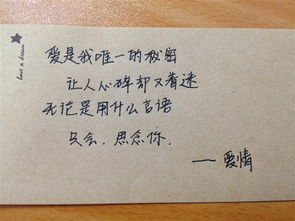 have a dream
爱是我唯一的秘密
让人心碎却又着迷
无论是用什么言语
只会,思念你.
——爱情